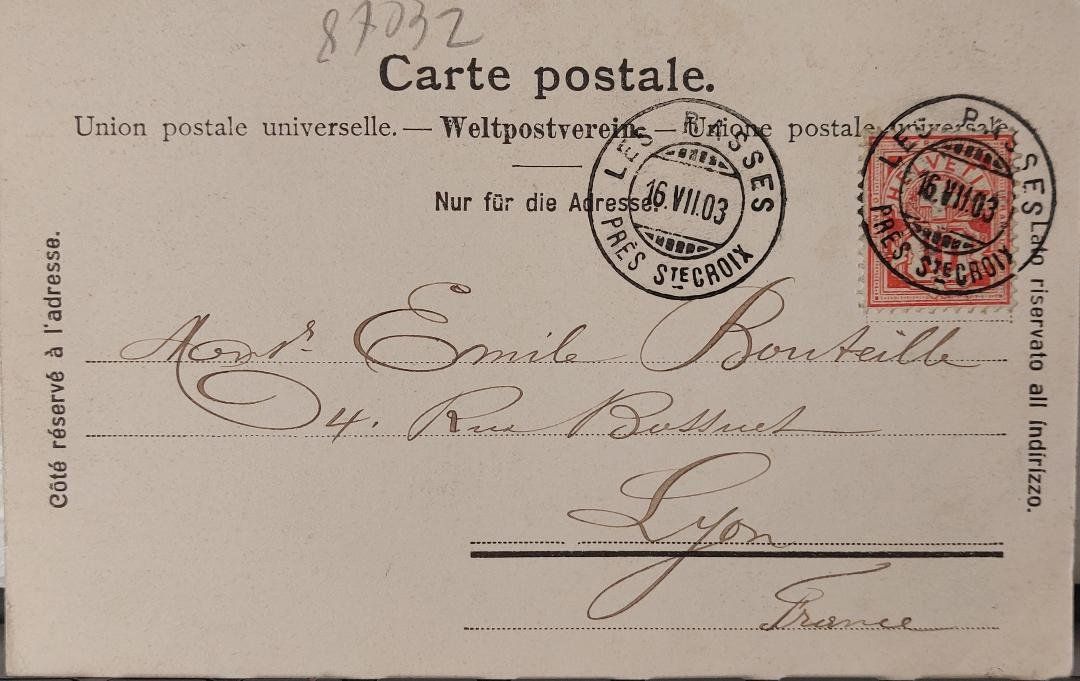 87032
Carte postale.
Union postale universelle. — Weltpostverein. — Unione postale universale.
Nur für die Adresse.
LES RASSES
16.VII.03
PRÈS STE CROIX
LES RASSES
16.VII.03
PRÈS STE CROIX
HELVETIA
Côté réservé à l'adresse.
Lato riservato all indirizzo.
Monsr. Emile Bouteille
4. Rue Bossuet
Lyon
France